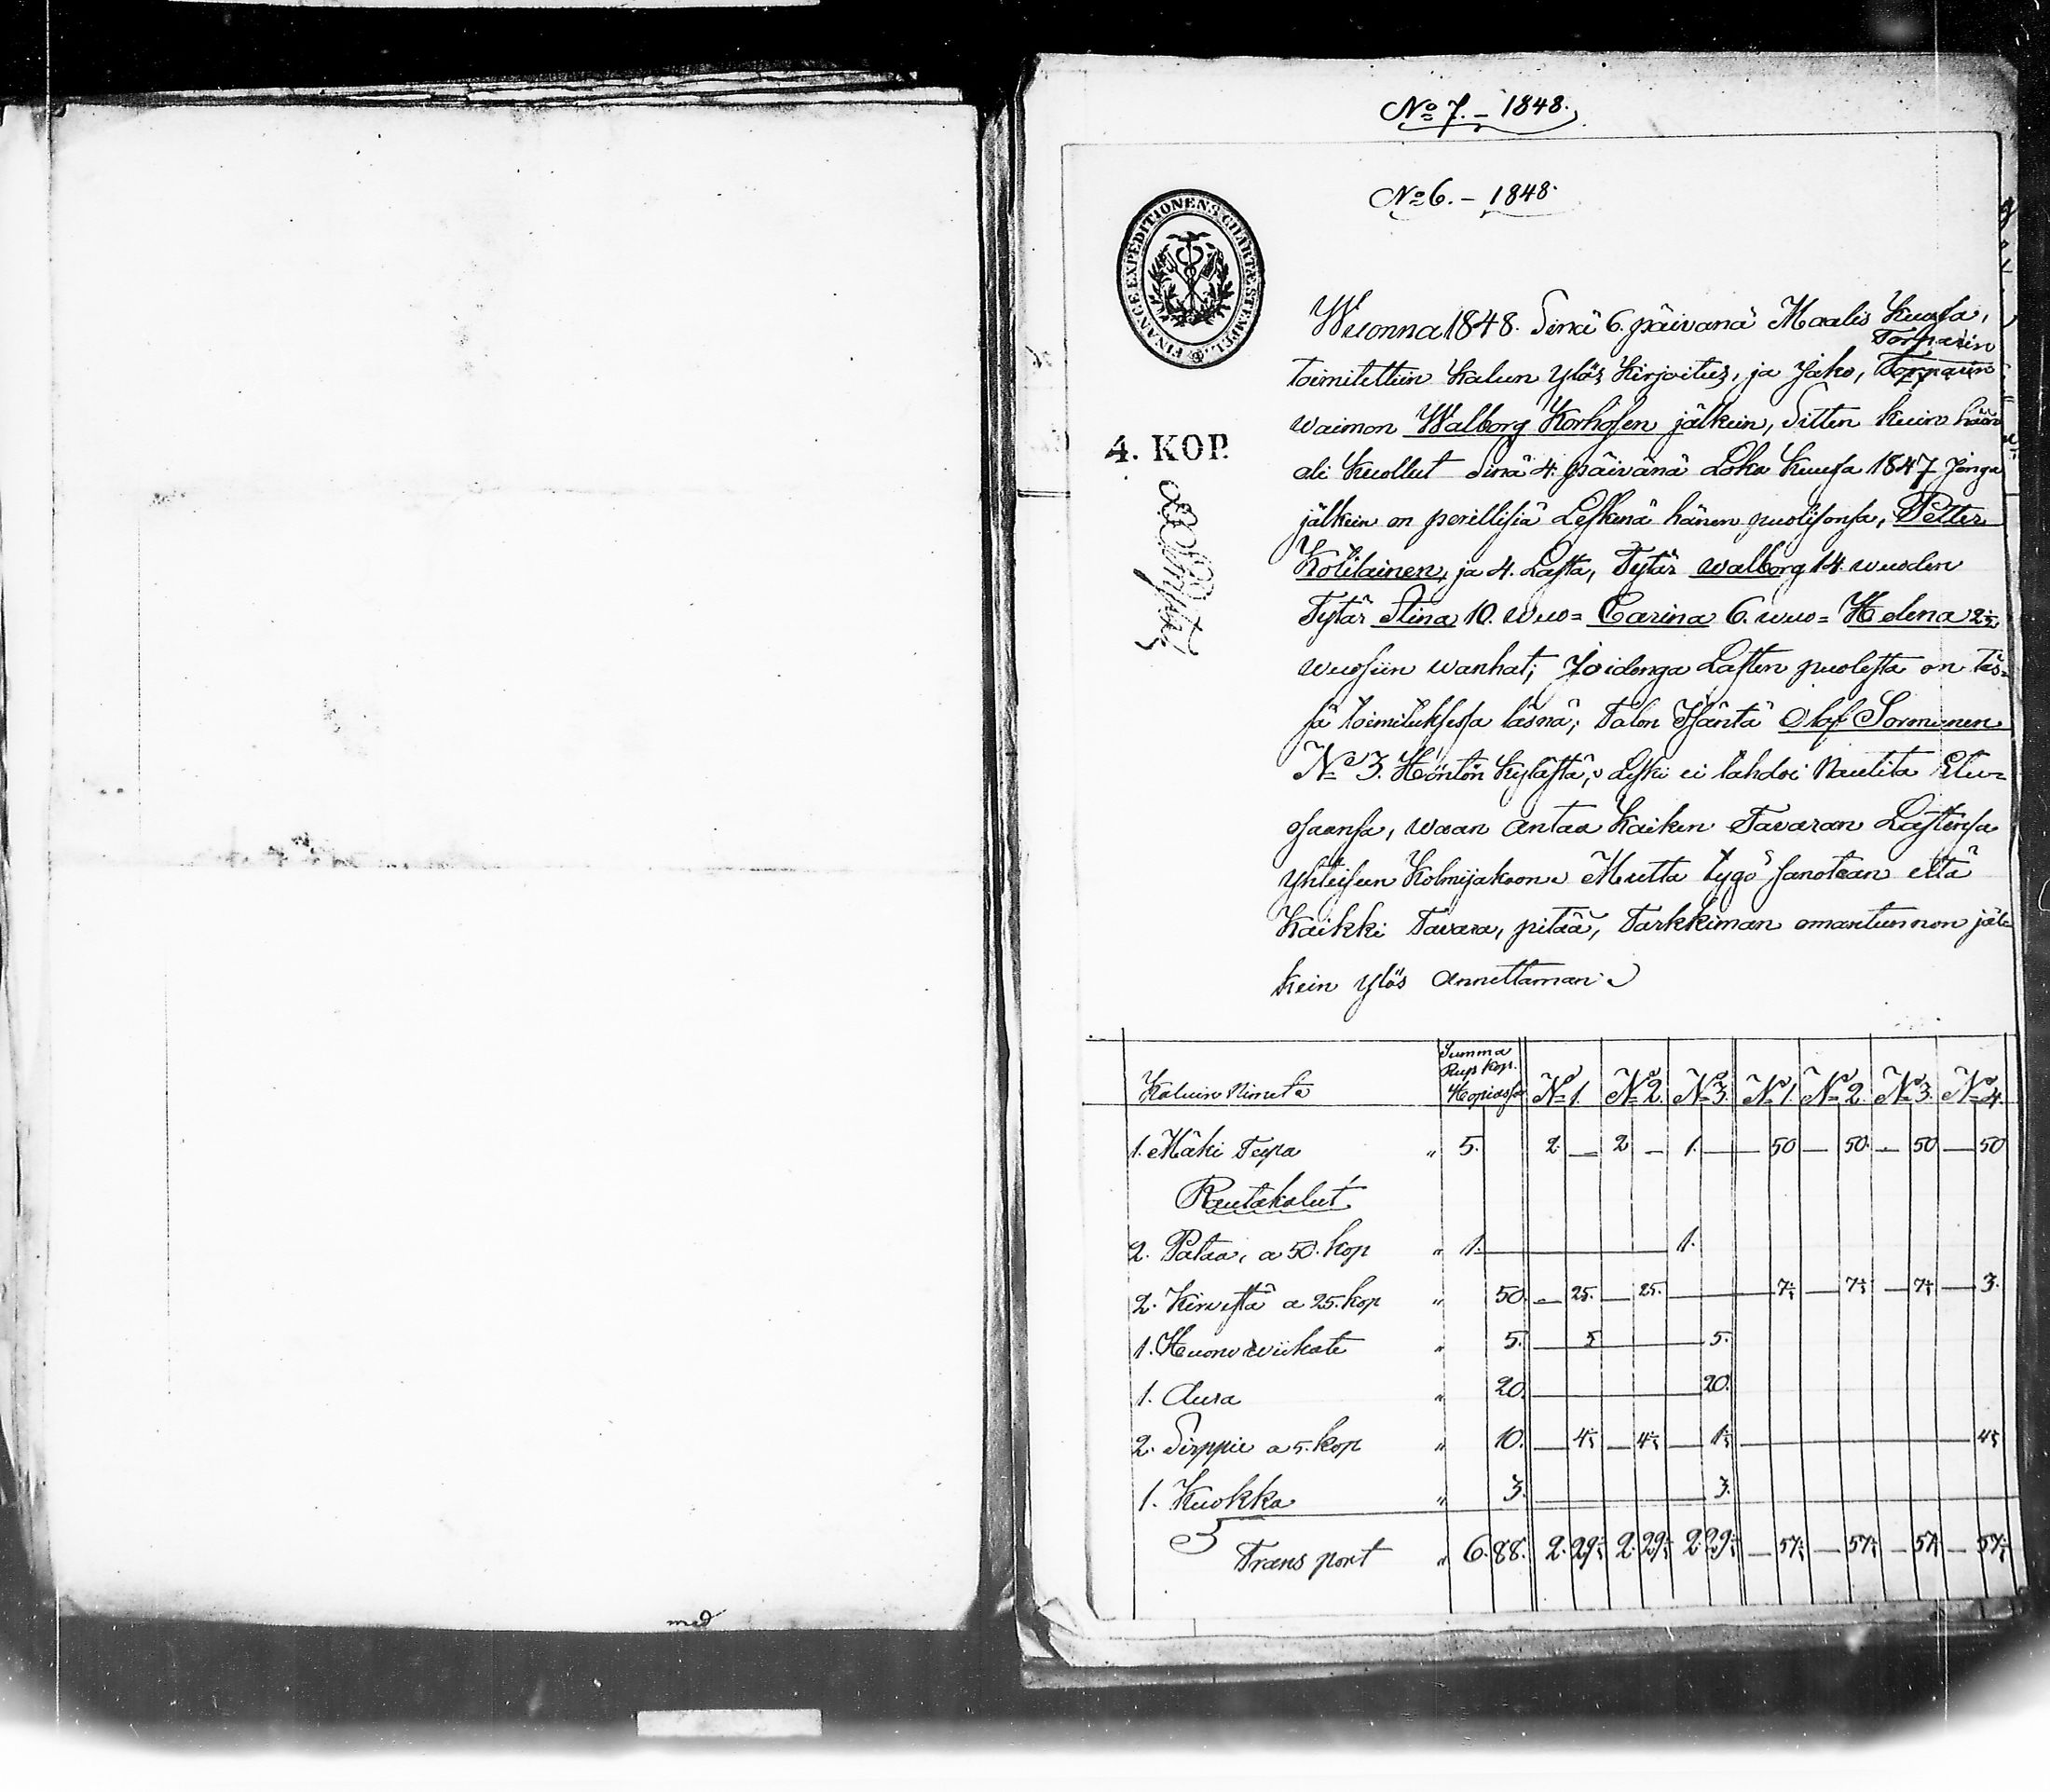 No 7. – 1848.
No 6. – 1848.
FINANCE EXPEDITIONENS CHARTÆ STEMPEL.
4. KOP.
Wuonna 1848. Sinä 6. päivänä Maalis Kuusa,
Torparin
toimitettiin Kalun Ylös Kirjoitus, ja Jako, Torparin
waimon Walborg Korhosen jälkein, Sitten kuin hän
oli Kuollut Sinä 4. päivänä Loka Kuusa 1847 jonga
jälkein on perillisiä Leskenä hänen puolisonsa, Petter
Kötiläinen, ja 4. Lasta, Tytär Walborg 14. wuoden
Tytär Stina 10. wuo= Carina 6. wuo= Helena 2½
wuosiin wanhat; Joidenga Lasten puolesta on täs=
sä toimituksessa läsnä; Talon Isäntä Olof Sormunen
No 3. Höntön Kylästä; Leski ei tahdoi Nautita Etu=
osaansa, waan antaa Kaiken Tavaran Lastensa
Yhteiseen Kolmijakoon. Mutta tygö sanotaan että
Kaikki Tavara, pitää, Tarkkiman omantunnon jäl=
kein ylös Annettaman.
Kaluin Nimetä Summa Rup Kop. Hopiassa No 1. No 2. No 3. No 1. No 2. No 3. No 4.
1. Mäki Tupa " 5. 2. — 2 — 1. — — 50 — 50. — 50 — 50
Rautakalut
2. Pataa, a 50. kop " 1. — 1.
2. Kirvestä a 25. kop " 50. — 25. — 25. — 7½ — 7½ — 7½ — 3.
1. Huono wiikate " 5. — 5 — 5.
1. Aura " 20. — 20.
2. Sirppie a 5. kop " 10. — 4½ — 4½ — 1½ — 4½
1. Kuokka " 3. — 3.
Transport " 6. 88. 2. 29½ 2. 29½ 2. 29½ — 57½ — 57½ — 57½ — 57½
med